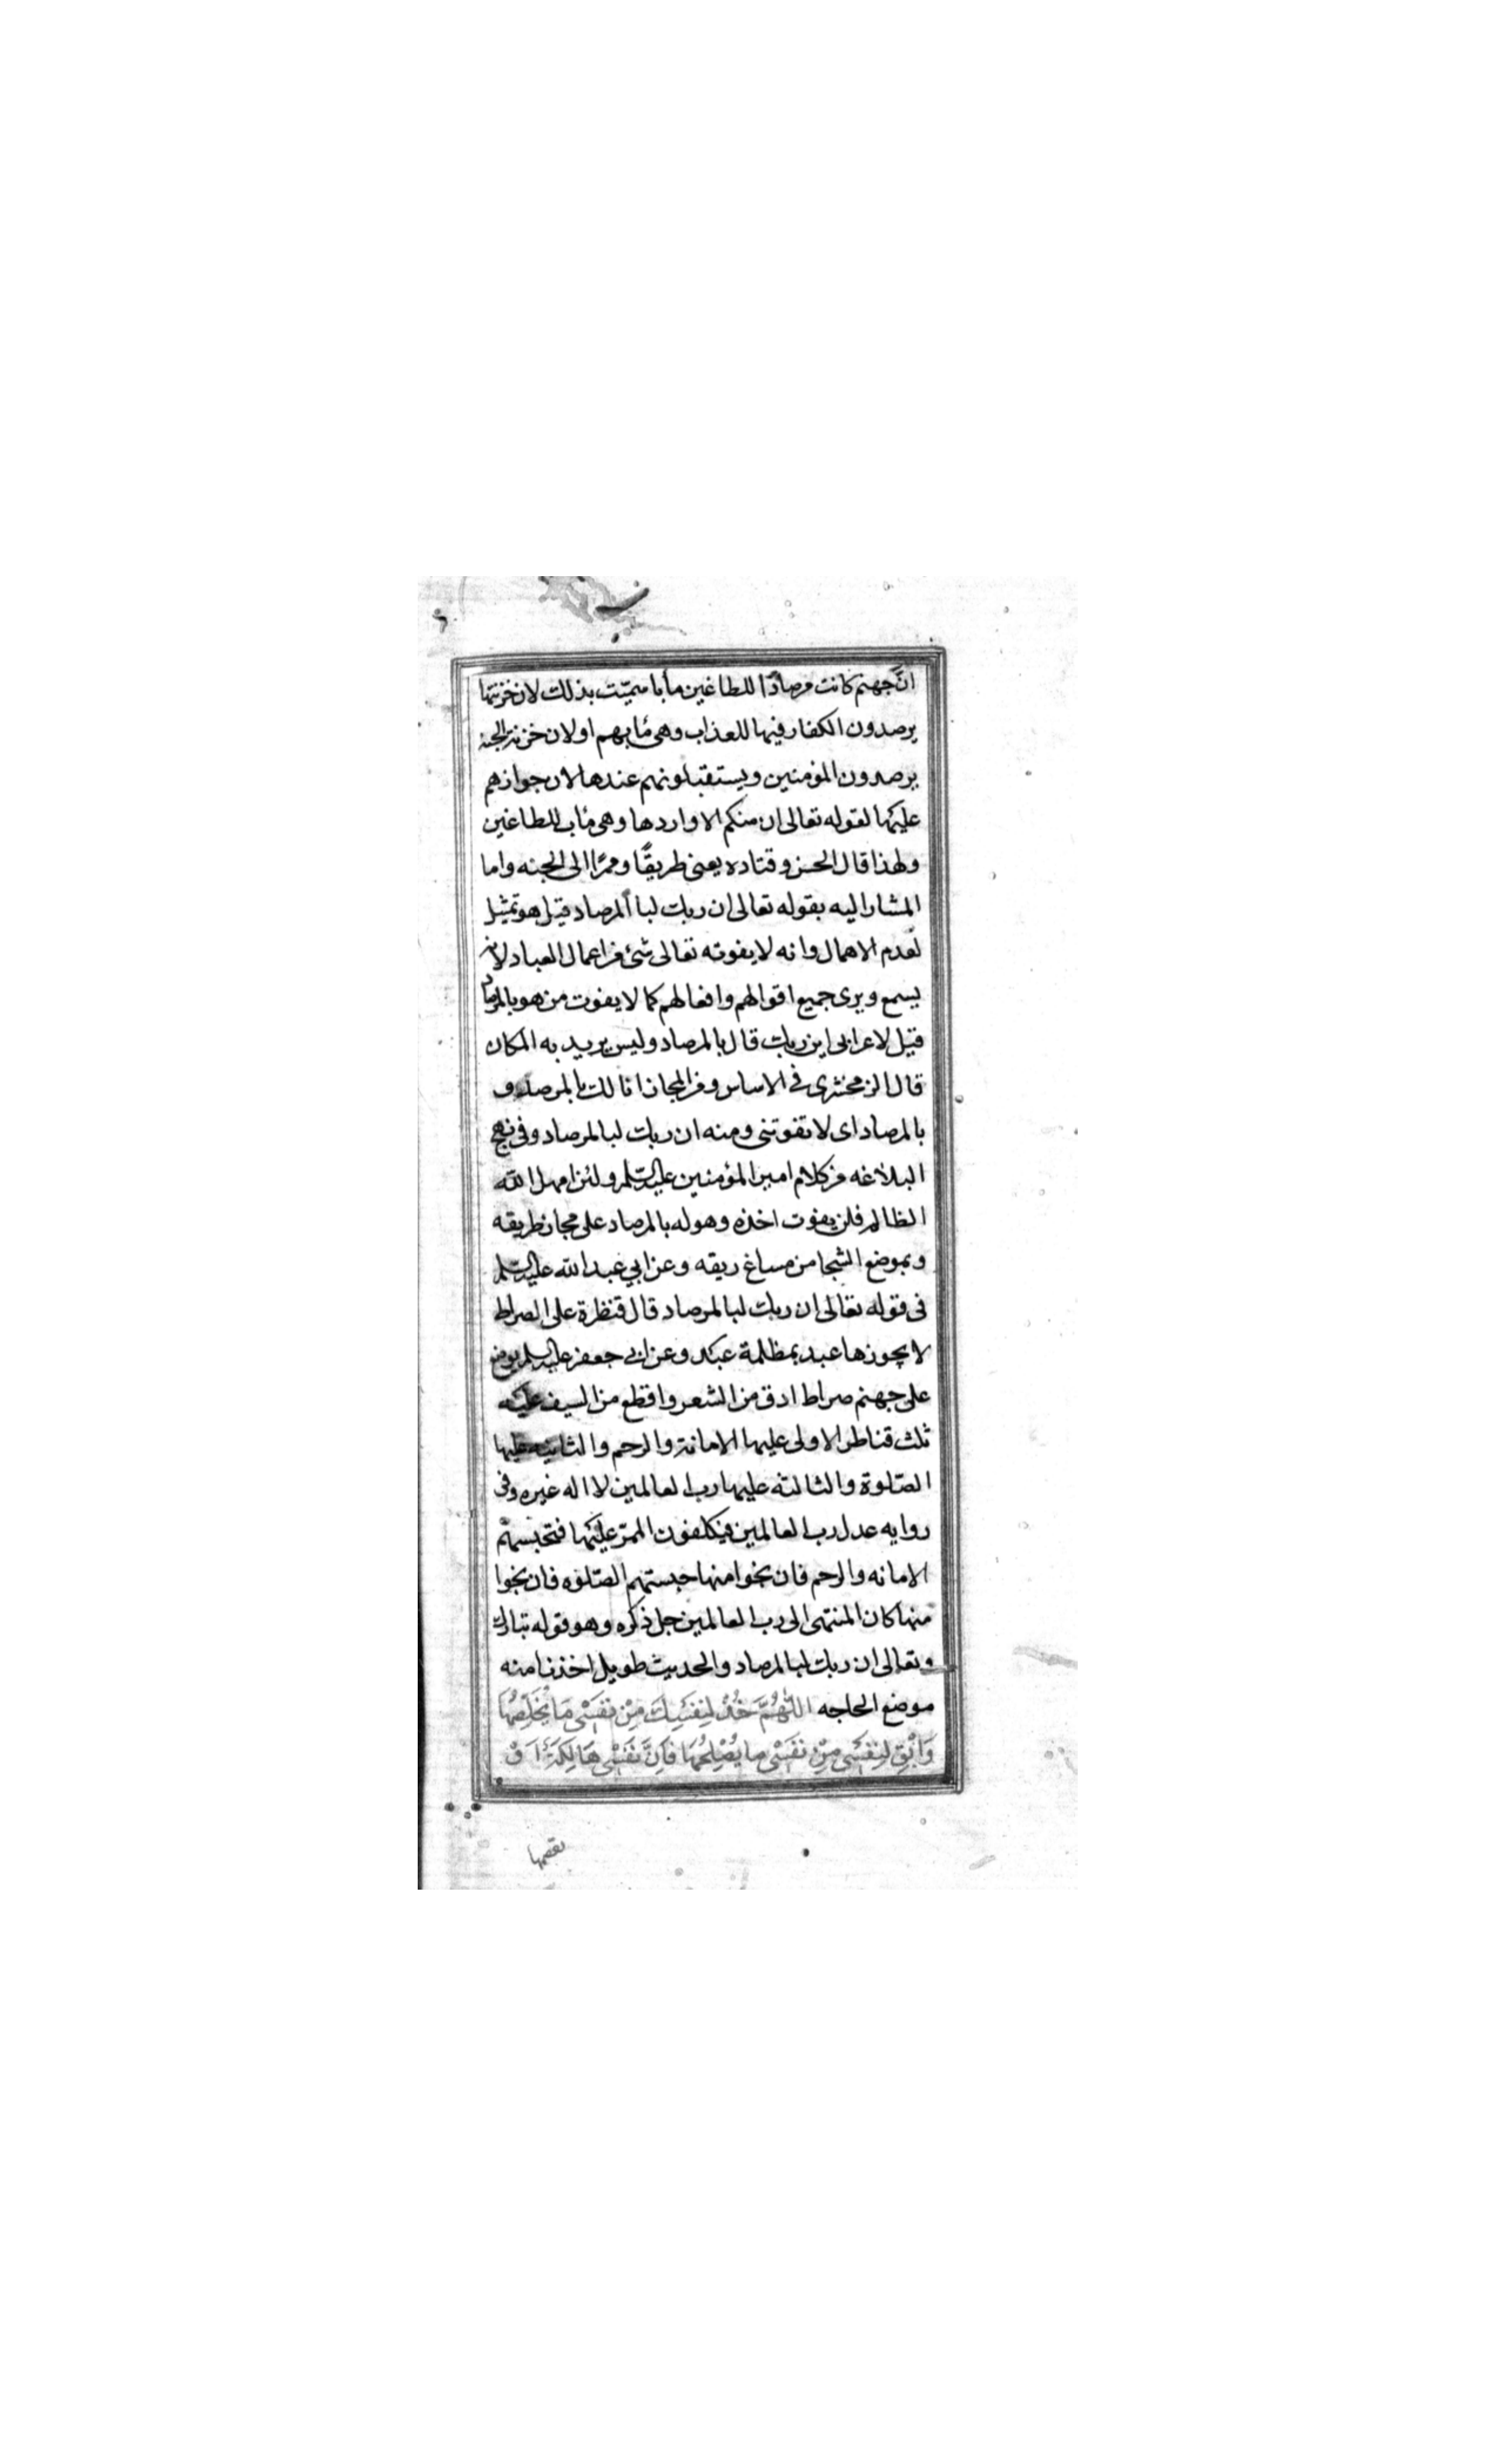 انَّ جهنم كانت مرصادًا للطاغين مأبا سميّت بذلك لان خزنتها
يرصدون الكفار فيها للعذاب وهى مٰابهم او لان خزنة الجنه
يرصدون المؤمنين ويستقبلونهم عندها لان جوازهم
عليها لقوله تعالى ان منكم الا واردها وهى مٰاب للطاغين
ولهذا قال الحسن وقتاده يعنى طريقًا وممرًا الى الجنه واما
المشار اليه بقوله تعالى ان ربك لبا المرصاد قيل هو تمثيل
لعدم الاهمال وانه لا يفوته تعالى شئ من اعمال العباد لانه
يسمع ويرى جميع اقوالهم وافعالهم كما لا يفوت من هو بالمرصاد
قيل لاعرابى اين ربك قال بالمرصاد وليس يريد به المكان
قال الزمخشرى فى الاساس ومن المجاز انا لك بالمرصد و
بالمرصاد اى لا تفوتنى ومنه ان ربك لبالمرصاد وفى نهج
البلاغه من كلام امير المؤمنين عليه السلم ولئن امهل الله
الظالم فلن يفوت اخذه وهو له بالمرصاد على مجاز طريقه
وبموضع الشجا من مساغ ريقه وعن ابي عبد الله عليه السلم
فى قوله تعالى ان ربك لبالمرصاد قال قنظرة على الصراط
لا يجوزها عبد بمظلمة عبد وعن ابى جعفر عليه السلم يوضع
على جهنم صراط ادق من الشعر واقطع من السيف عليه
ثلث قناطر الاولى عليها الامانة والرحم والثانيه عليها
الصّلوة والثالثه عليها رب العالمين لا اله غيره وفى
روايه عدل رب العالمين فيكلفون الممرّ عليها فتحبسهم
الامانه والرحم فان نجوا منها حبستهم الصّلوه فان نجوا
منها كان المنتهى الى رب العالمين جل ذكره وهو قوله تبارك
وتعالى ان ربك لبالمرصاد والحديث طويل اخذنا منه
موضع الحاجه اللّٰهُمَّ خُذْ لِنَفْسِكَ مِنْ نَفْسْى مَا يُخَلِّصُهَا
وَابْقِ لِنَفْسْى مِنْ نَفْسْى ما يُصْلِحُهَا فَاِنَّ نَفْسْى هَالِكَةٌ اَوْ
تعصمها